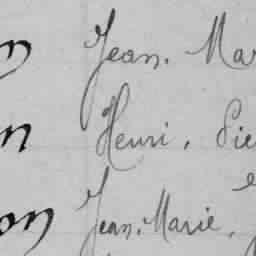 n Jean. Mar
n Henri. Pie
on Jean, Marie,